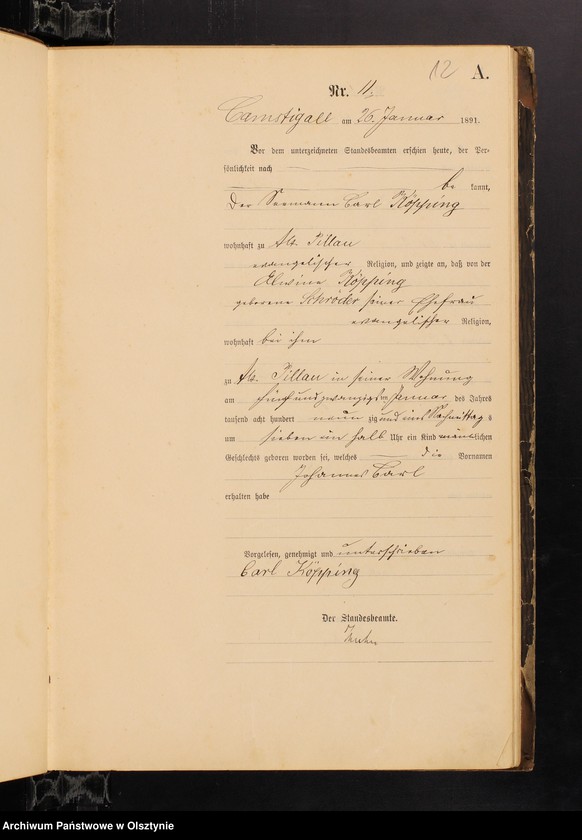 12 A.
Nr. 11.
Camstigall am 26. Januar 1891.
Vor dem unterzeichneten Standesbeamten erschien heute, der Per-
sönlichkeit nach
be kannt,
Der Seemann Carl Köpping
wohnhaft zu Alt Pillau
evangelischer Religion, und zeigte an, daß von der
Elwine Köpping
geborene Schröder seiner Ehefrau
evangelischer Religion,
wohnhaft bei ihm
zu Alt Pillau in seiner Wohnung
am fünfundzwanzigsten Januar des Jahres
tausend acht hundert neun zig und eins Nachmittags
um sieben ein halb Uhr ein Kind männlichen
Geschlechts geboren worden sei, welches die Vornamen
Johannes Carl
erhalten habe
Vorgelesen, genehmigt und unterschrieben
Carl Köpping
Der Standesbeamte.
Archiwum Państwowe w Olsztynie